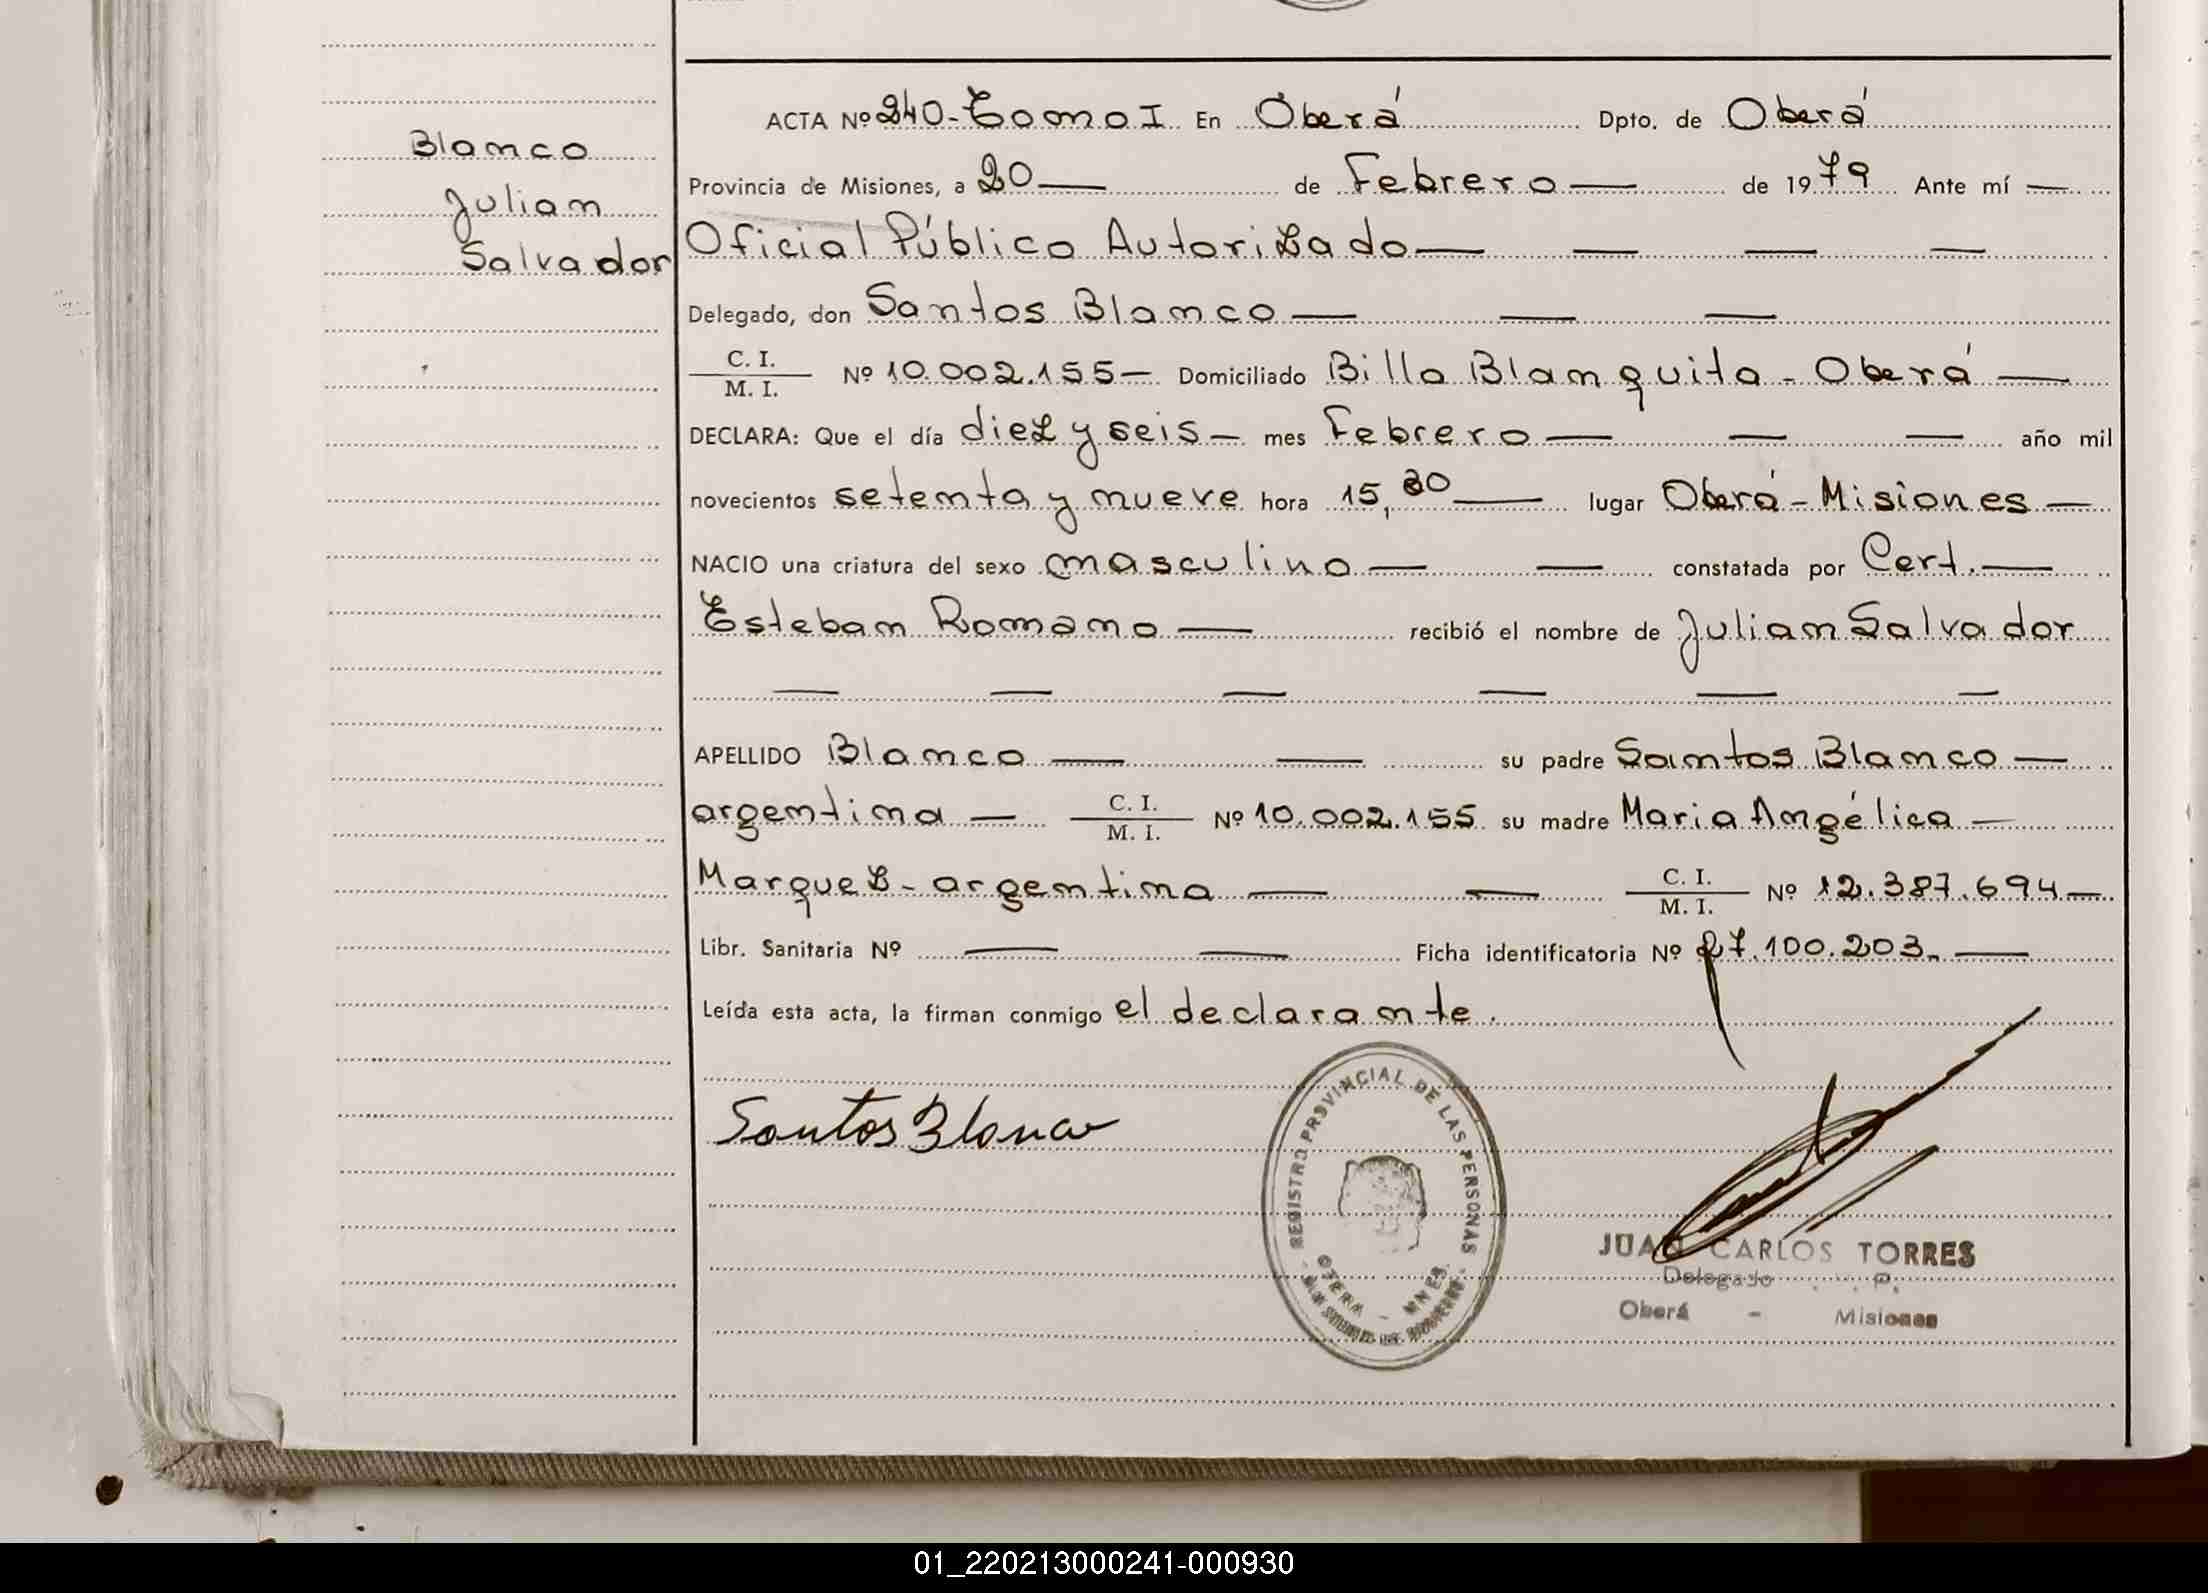 Blanco
Julian
Salvador
ACTA Nº 240 - Tomo I En Oberá Dpto. de Oberá
Provincia de Misiones, a 20 — de Febrero — de 1979 Ante mí —
Oficial Público Autorizado — — — —
Delegado, don Santos Blanco — — —
C. I.
M. I. Nº 10.002.155 — Domiciliado Billa Blanquita - Oberá —
DECLARA: Que el día diez y seis — mes Febrero — — — año mil
novecientos setenta y nueve hora 15,30 — lugar Oberá - Misiones —
NACIO una criatura del sexo masculino — — constatada por Cert. —
Esteban Romano — recibió el nombre de Julian Salvador
— — — — — —
APELLIDO Blanco — — su padre Santos Blanco —
argentina — C. I.
M. I. Nº 10.002.155 su madre Maria Angélica —
Marquez - argentina — — C. I.
M. I. Nº 12.387.694 —
Libr. Sanitaria Nº — — Ficha identificatoria Nº 27.100.203. —
Leída esta acta, la firman conmigo el declarante.
Santos Blanco
REGISTRO PROVINCIAL DE LAS PERSONAS
OBERA - MNES.
JUAN CARLOS TORRES
Delegado R. P.
Oberá - Misiones
01_220213000241-000930